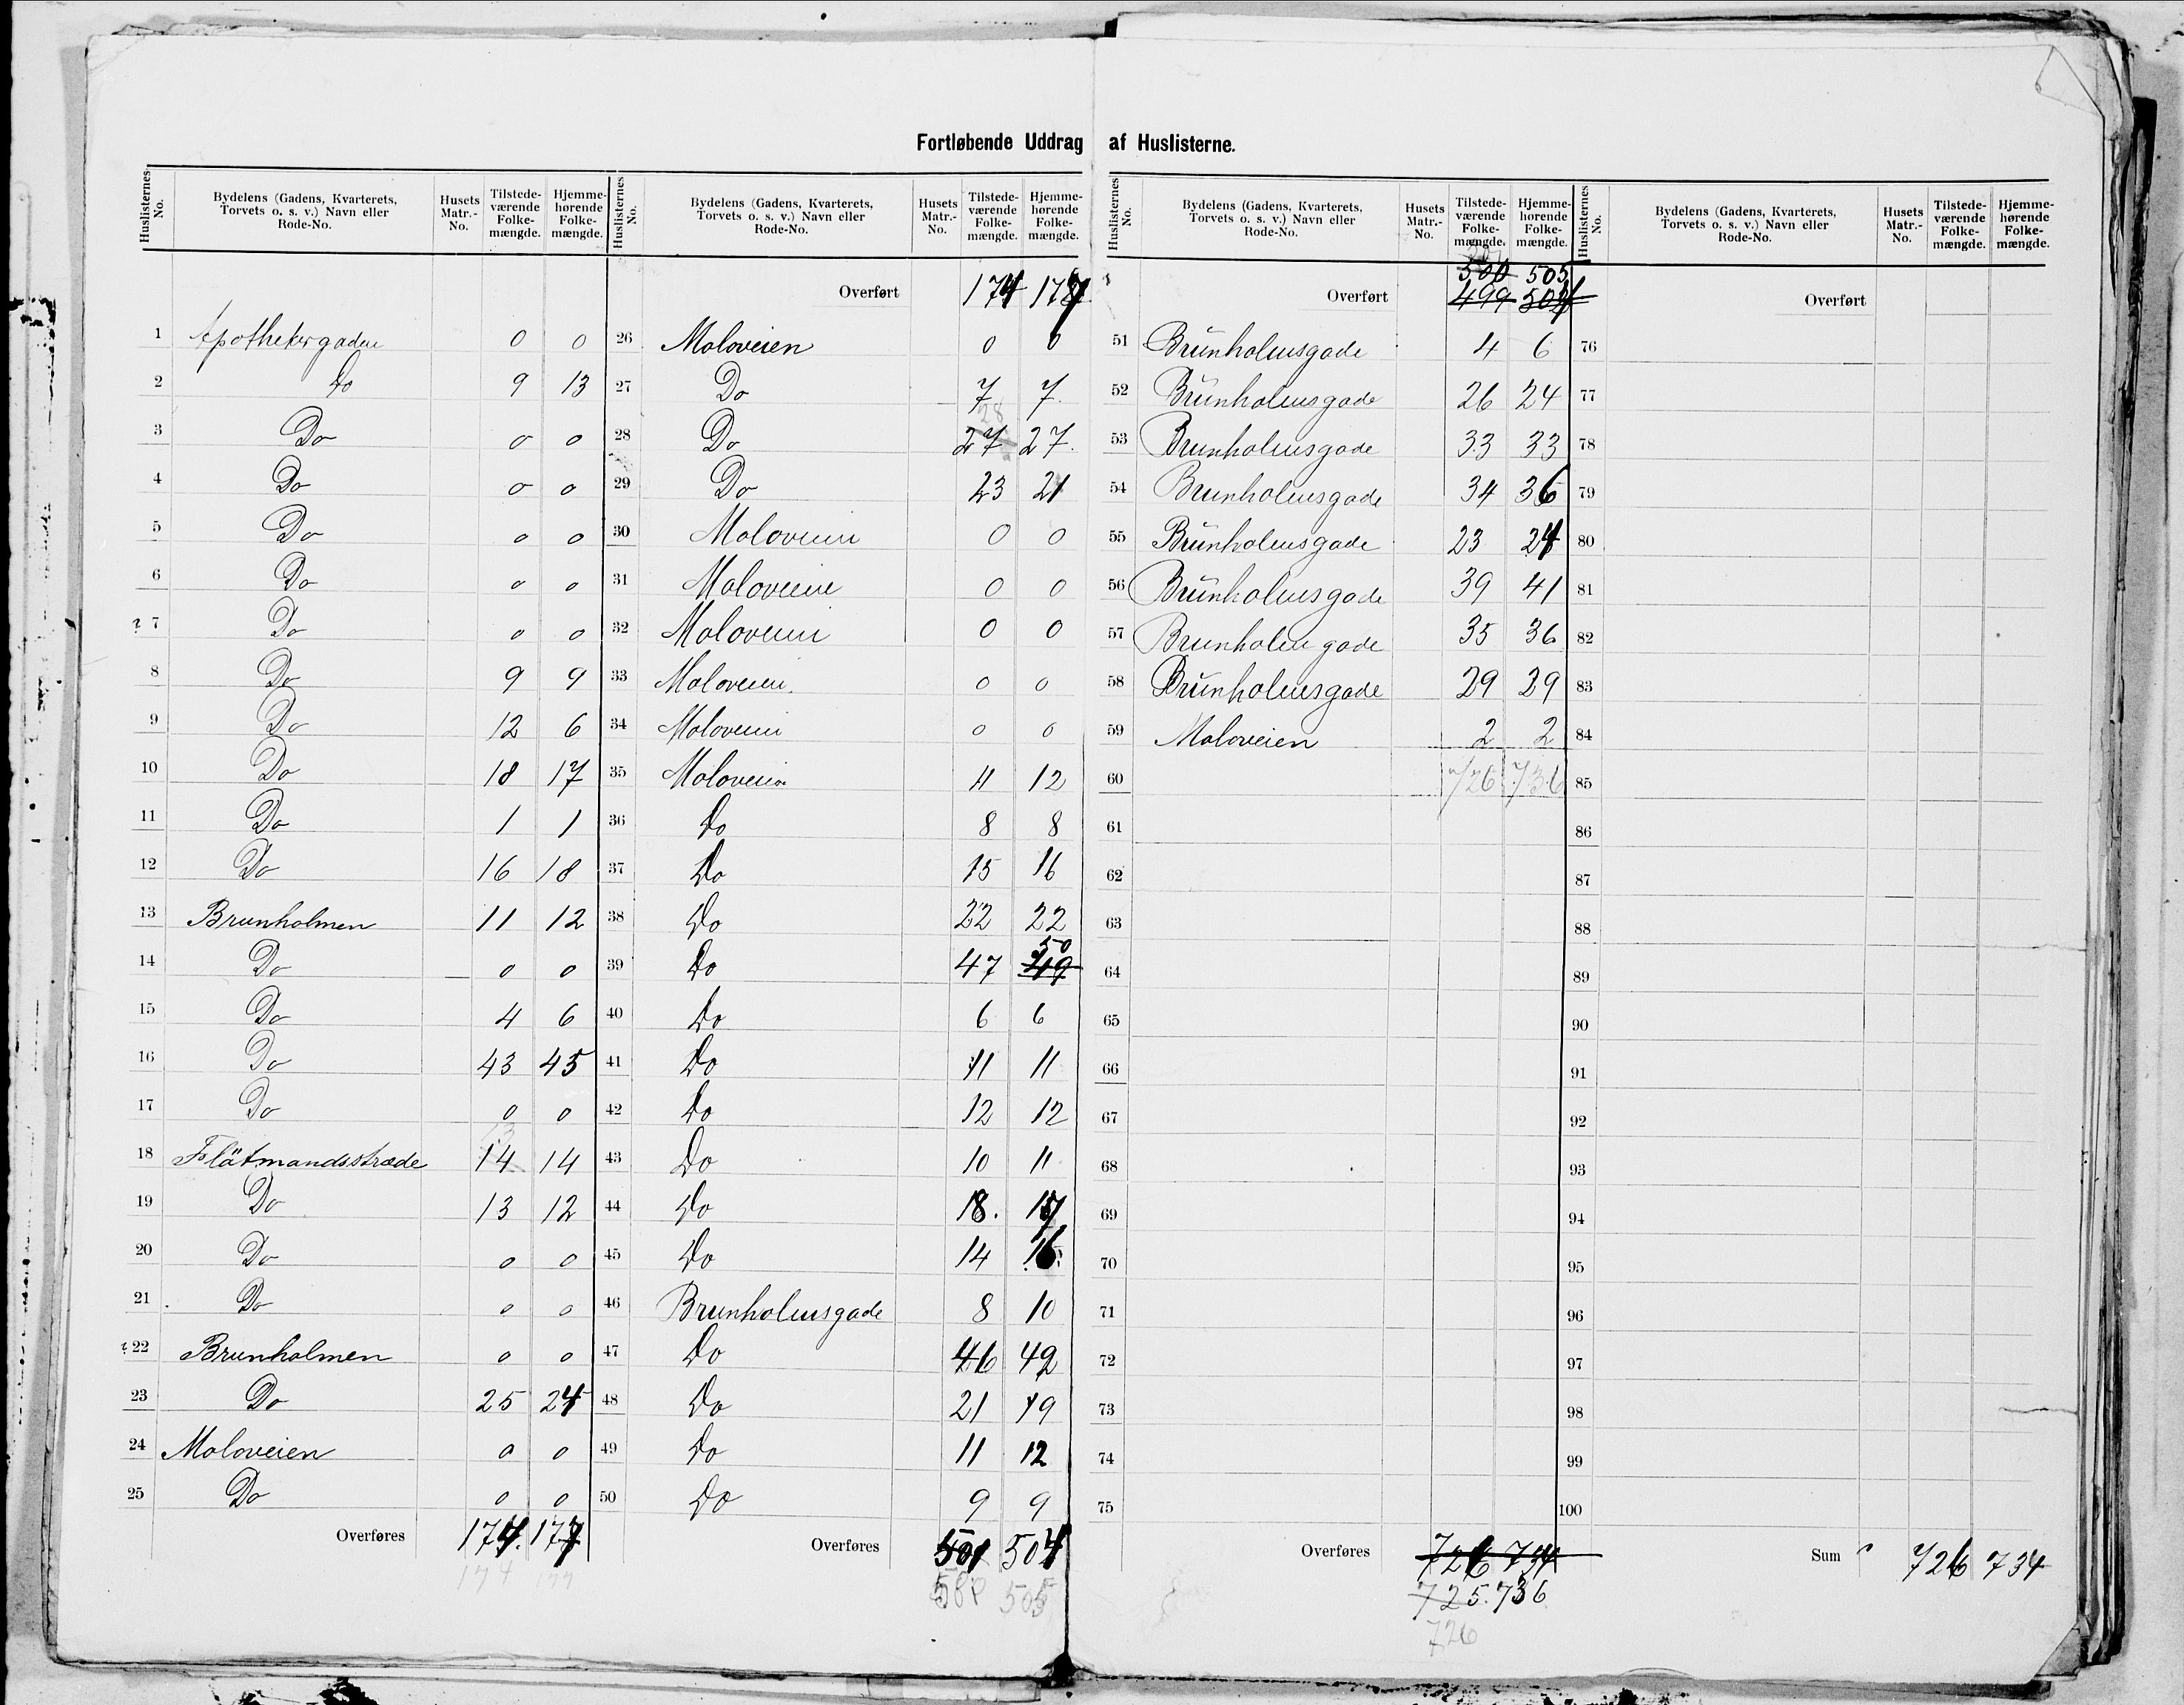 Fortløbende Uddrag af Huslisterne.
Huslisternes No. Bydelens (Gadens, Kvarterets, Torvets o. s. v.) Navn eller Rode-No. Husets Matr.-No. Tilstede-værende Folke-mængde. Hjemme-hørende Folke-mængde.
1 Apothekergaden 0 0
2 Do 9 13
3 Do 0 0
4 Do 0 0
5 Do 0 0
6 Do 0 0
? 7 Do 0 0
8 Do 9 9
9 Do 12 6
10 Do 18 17
11 Do 1 1
12 Do 16 18
13 Brunholmen 11 12
14 Do 0 0
15 Do 4 6
16 Do 43 45
17 Do 0 0
13
18 Flätmandsstræde 14 14
19 Do 13 12
20 Do 0 0
21 Do 0 0
? 22 Brunholmen 0 0
23 Do 25 24
24 Moloveien 0 0
25 Do 0 0
Overføres 174 177
174 177
Huslisternes No. Bydelens (Gadens, Kvarterets, Torvets o. s. v.) Navn eller Rode-No. Husets Matr.-No. Tilstede-værende Folke-mængde. Hjemme-hørende Folke-mængde.
Overført 174 177
26 Moloveien 0 0
27 Do 7 7
28
28 Do 27 27
29 Do 23 21
30 Moloveien 0 0
31 Moloveien 0 0
32 Moloveien 0 0
33 Moloveien 0 0
34 Moloveien 0 0
35 Moloveien 11 12
36 Do 8 8
37 Do 15 16
38 Do 22 22
50
39 Do 47 49
40 Do 6 6
41 Do 11 11
42 Do 12 12
43 Do 10 11
44 Do 18 17
45 Do 14 16
46 Brunholmsgade 8 10
47 Do 46 49
48 Do 21 19
49 Do 11 12
50 Do 9 9
Overføres 501 504
500 505
Huslisternes No. Bydelens (Gadens, Kvarterets, Torvets o. s. v.) Navn eller Rode-No. Husets Matr.-No. Tilstede-værende Folke-mængde. Hjemme-hørende Folke-mængde.
500 505
Overført 499 504
51 Brunholmsgade 4 6
52 Brunholmsgade 26 24
53 Brunholmsgade 33 33
54 Brunholmsgade 34 36
55 Brunholmsgade 23 24
56 Brunholmsgade 39 41
57 Brunholmgade 35 36
58 Brunholmsgade 29 29
59 Moloveien 2 2
60 726 736
61
62
63
64
65
66
67
68
69
70
71
72
73
74
75
Overføres 726 734
725 736
726
Huslisternes No. Bydelens (Gadens, Kvarterets, Torvets o. s. v.) Navn eller Rode-No. Husets Matr.-No. Tilstede-værende Folke-mængde. Hjemme-hørende Folke-mængde.
Overført
76
77
78
79
80
81
82
83
84
85
86
87
88
89
90
91
92
93
94
95
96
97
98
99
100
Sum 726 734